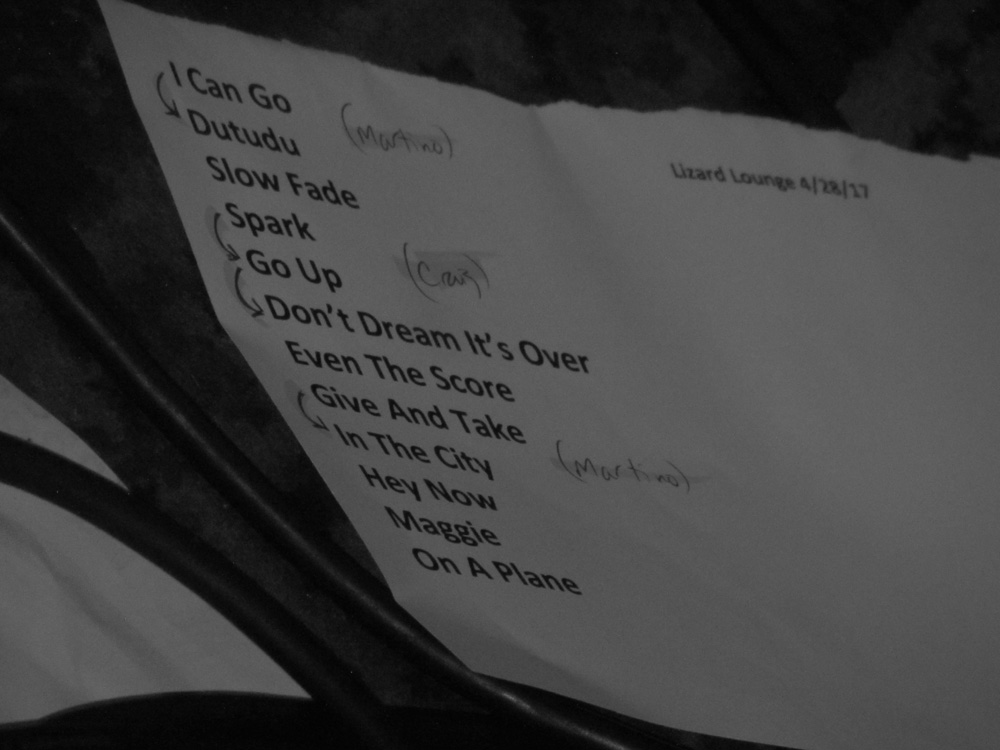 I Can Go
Dutudu (Martino)
Slow Fade
Spark
Go Up (Craig)
Don't Dream It's Over
Even The Score
Give And Take
In The City (Martino)
Hey Now
Maggie
On A Plane
Lizard Lounge 4/28/17